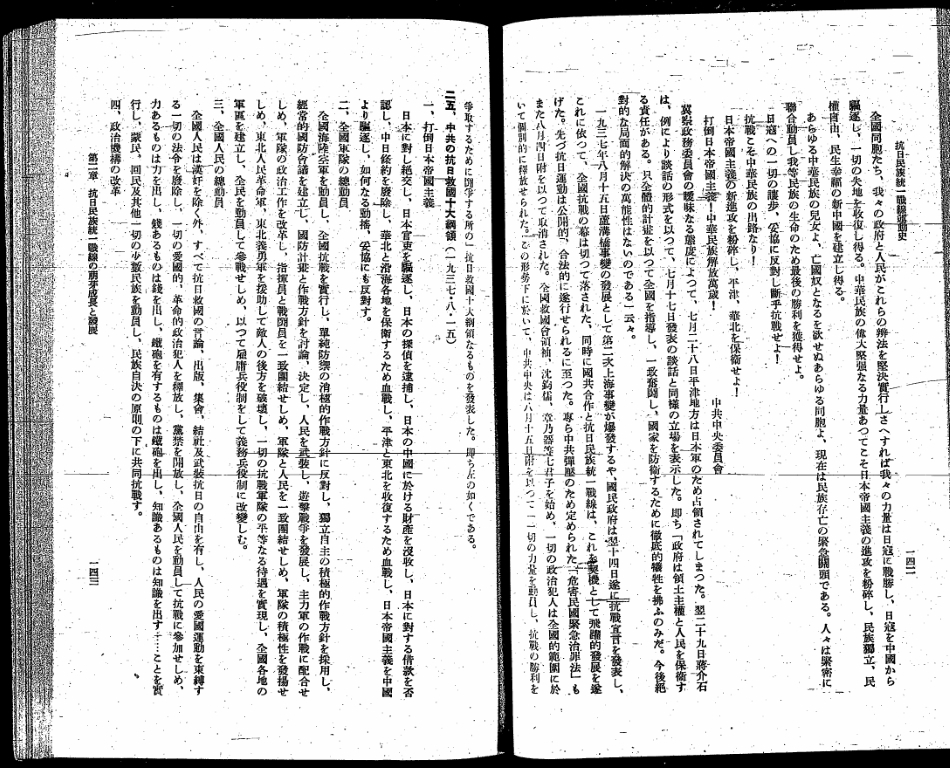 抗日民族統一戰線運動史
一四二
全國同胞たち、我々の政府と人民がこれらの辨法を堅決實行しさへすれば我々の力量は日寇に戰勝し、日寇を中國から
驅逐し、一切の失地を收復し得る。中華民族の偉大堅强なる力量あつてこそ日本帝國主義の進攻を粉碎し、民族獨立、民
權自由、民生幸福の新中國を建立し得る。
あらゆる中華民族の兒女よ、亡國奴となるを欲せぬあらゆる同胞よ、現在は民族存亡の緊急關頭である。人々は緊密に
聯合動員し我等民族の生命のため最後の勝利を獲得せよ。
日寇への一切の讓步、妥協に反對し斷乎抗戰せよ！
抗戰こそ中華民族の出路なり！
日本帝國主義の新進攻を粉碎し、平津、華北を保衞せよ！
打倒日本帝國主義！中華民族解放萬歲！
中共中央委員會
冀察政務委員會の曖昧なる態度によつて、七月二十八日平津地方は日本軍のため占領されてしまつた。翌二十九日蔣介石
は、例により談話の形式を以つて、七月十七日發表の談話と同樣の立場を表示した。即ち「政府は領土主權と人民を保衞す
る責任がある。只全體的計畫を以つて全國を指導し、一致奮鬪し、國家を防衞するために徹底的犧牲を拂ふのみだ。今後絕
對的な局面的解決の可能性はないのである」云々。
一九三七年八月十五日蘆溝橋事變の發展として第二次上海事變が爆發するや、國民政府は翌十四日遂に抗戰宣言を發表し、
これに依つて、全國抗戰の幕は切つて落された。同時に國共合作と抗日民族統一戰線は、これを契機として飛躍的發展を遂
げた。先づ抗日運動は公開的、合法的に遂行せられるに至つた。專ら中共彈壓のため定められた「危害民國緊急治罪法」も
また八月四日附を以つて取消された。全國救國會領袖、沈鈞儒、章乃器等七君子を始め、一切の政治犯人は全國的範圍に於
いて個別的に釋放せられた。この形勢下に於いて、中共中央は八月十五日附を以つて、一切の力量を動員し、抗戰の勝利を
爭取するために鬪爭する所の「抗日救國十大綱領なるものを發表した。即ち左の如くである。
二五、中共の抗日救國十大綱領（一九三七・八・一五）
一、打倒日本帝國主義
日本に對し絕交し、日本官吏を驅逐し、日本の探偵を逮捕し、日本の中國に於ける財產を沒收し、日本に對する借款を否
認し、中日條約を廢除し、華北と沿海各地を保衞するため血戰し、平津と東北を收復するため血戰し、日本帝國主義を中國
より驅逐し、如何なる動搖、妥協にも反對す。
二、全國軍隊の總動員
全國海陸空軍を動員し、全國抗戰を實行し、單純防禦の消極的作戰方針に反對し、獨立自主の積極的作戰方針を採用し、
經常的國防會議を建立し、國防計畫と作戰方針を討論、決定し、人民を武裝し、遊擊戰爭を發展し、主力軍の作戰に配合せ
しめ、軍隊の政治工作を改革し、指揮員と戰鬪員を一致團結せしめ、軍隊と人民を一致團結せしめ、軍隊の積極性を發揚せ
しめ、東北人民革命軍、東北義勇軍を援助して敵人の後方を破壞し、一切の抗戰軍隊の平等なる待遇を實現し、全國各地の
軍區を建立し、全民を動員して參戰せしめ、以つて雇傭兵役制をして義務兵役制に改變しむ。
三、全國人民の總動員
全國人民は漢奸を除く外、すべて抗日救國の言論、出版、集會、結社及武裝抗日の自由を有し、人民の愛國運動を束縛す
る一切の法令を廢除し、一切の愛國的、革命的政治犯人を釋放し、黨禁を開放し、全國人民を動員して抗戰に參加せしめ、
力あるものは力を出し、錢あるものは錢を出し、鐵砲を有するものは鐵砲を出し、知識あるものは知識を出す……ことを實
行し、蒙民、回民及其他一切の少數民族を動員し、民族自決の原則の下に共同抗戰す。
四、政治機構の改革
第二章　抗日民族統一戰線の萌芽成長と發展
一四三